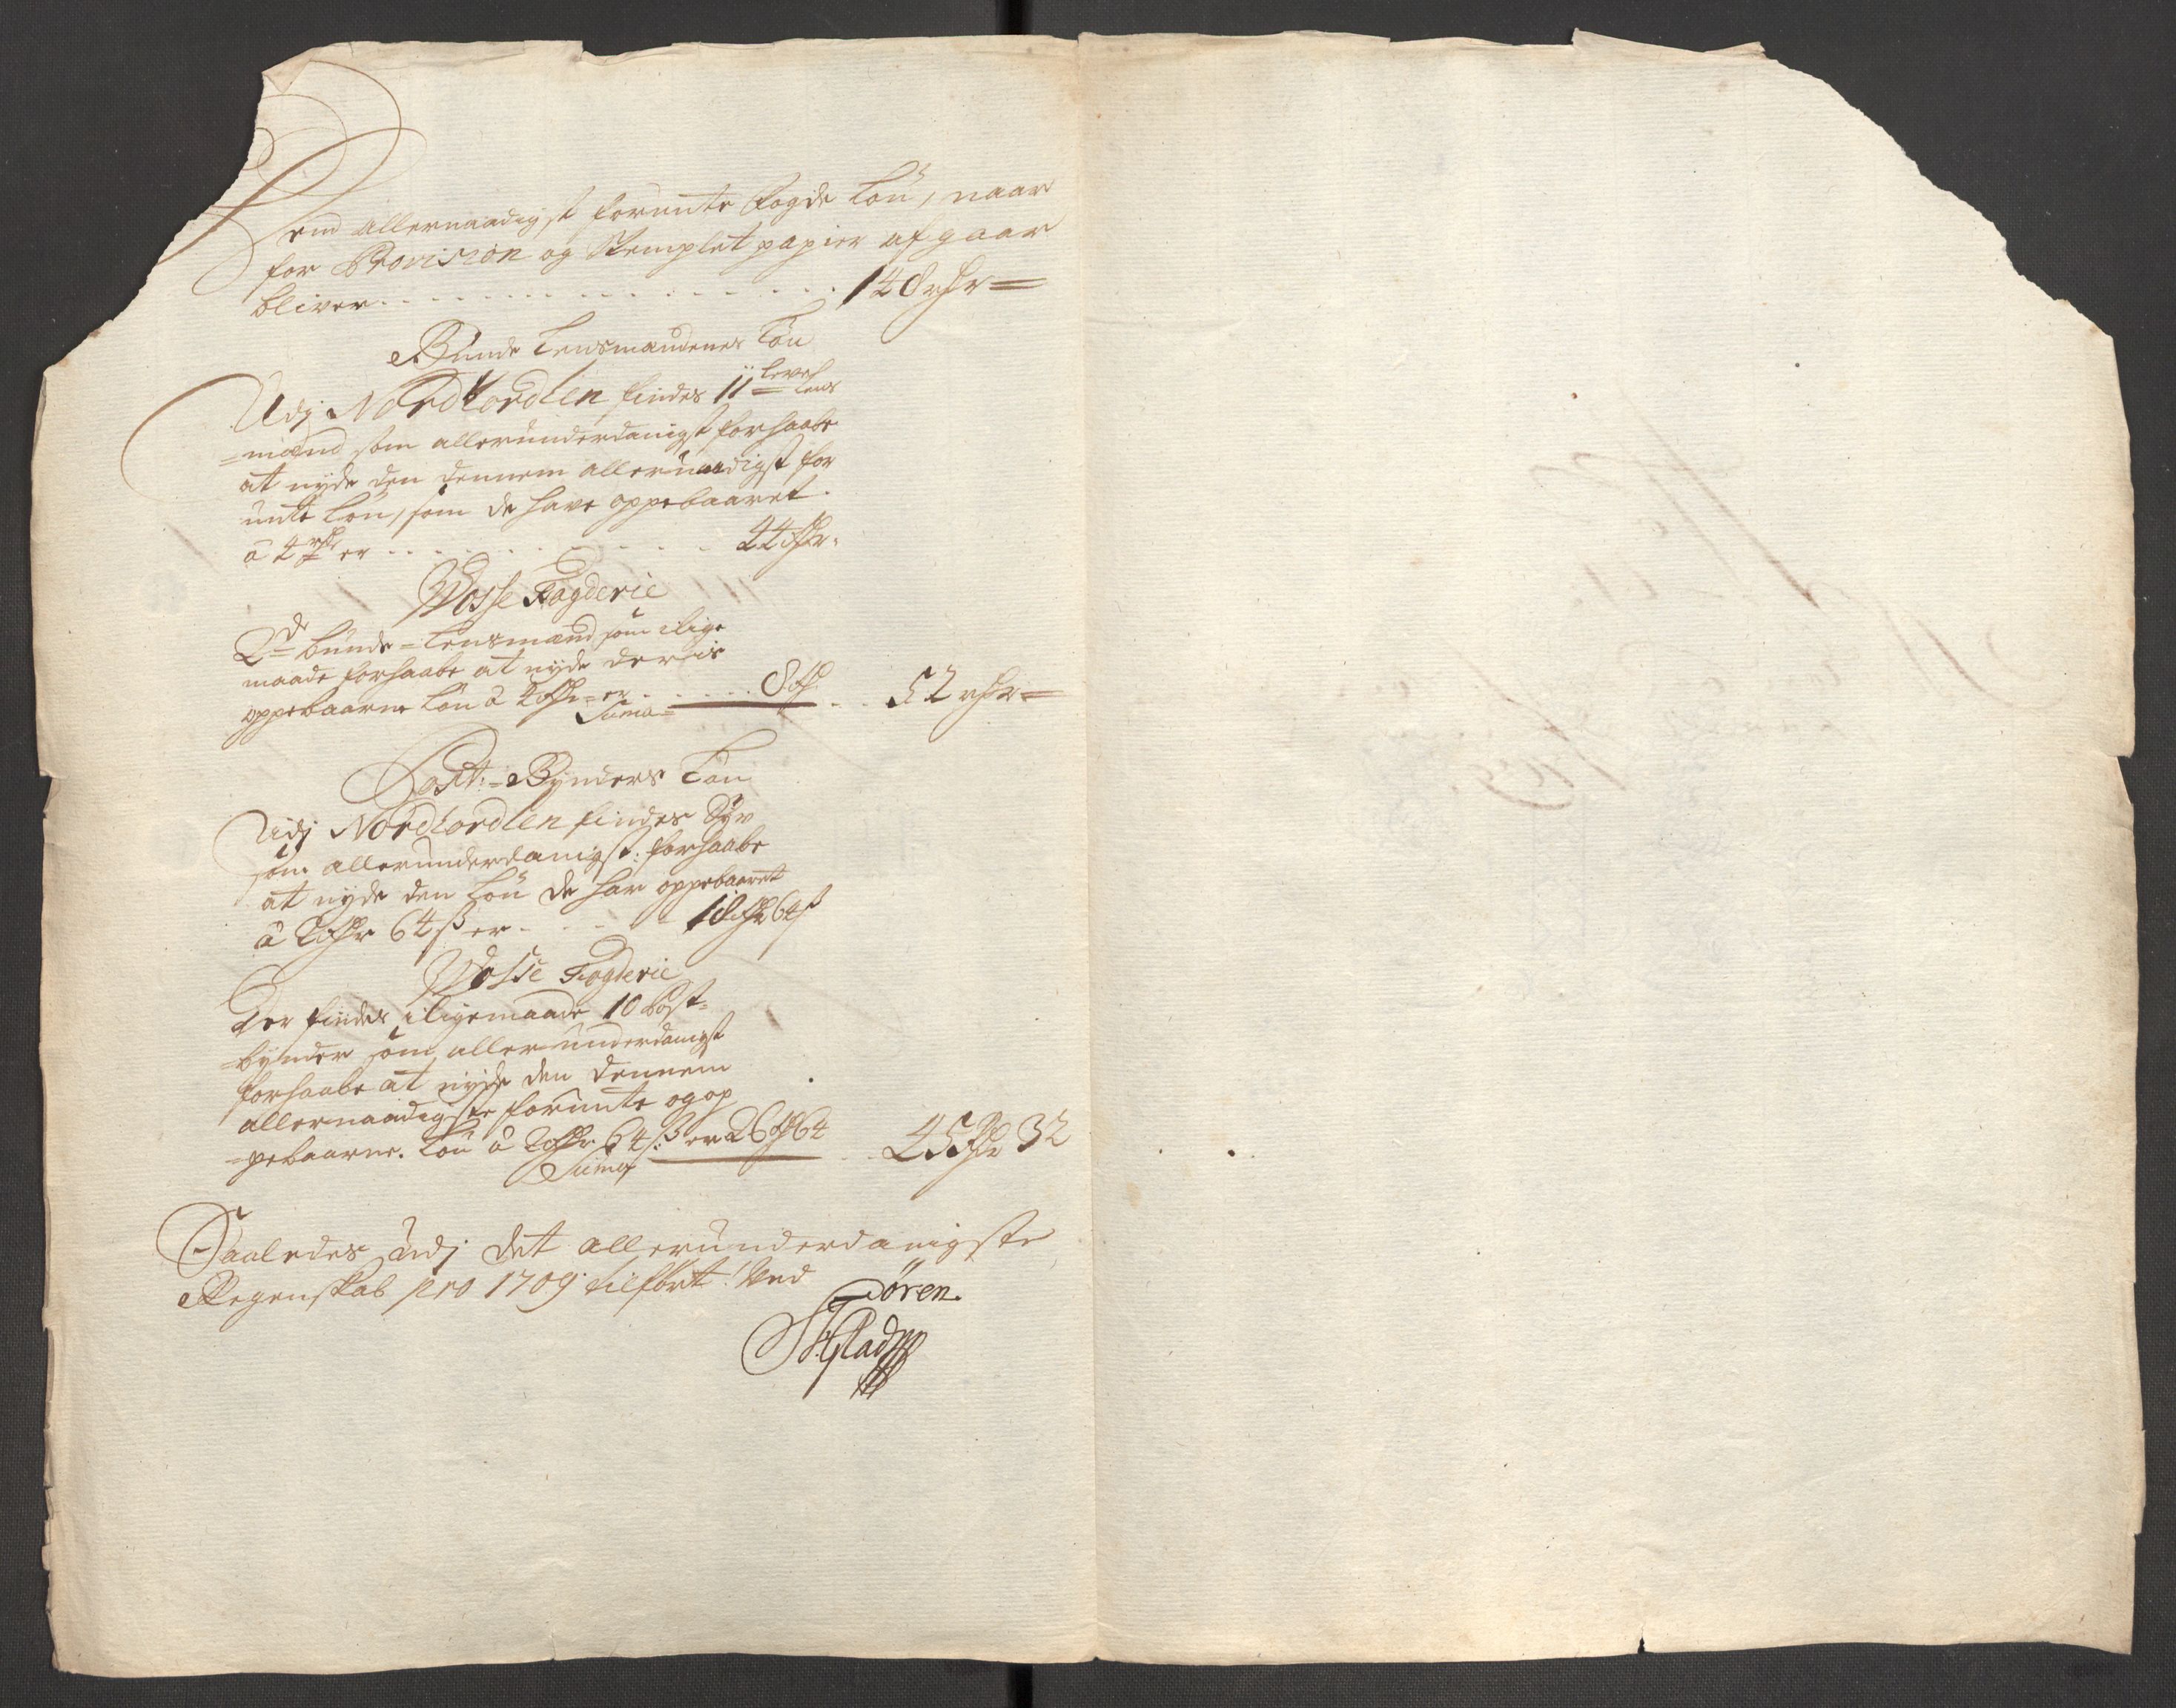 Den allernaadigst forunte Fogde Løn, naar
for Provision og Stemplet papier afgaar
bliver 148 rdr
Bunde Lensmandenes Løn
Udj Nordhordlen findes 11 Lens
=mænd som allerunderdanigst forhaabe
at nyde den dennem allernaadigst for
unte Løn, som de have oppebaaret
à 4 rdr er 44 rdr
Vosse Fogderie
2de bunde=Lensmænd som i lige
maade forhaabe at nyde deris
oppebaarne Løn à 4 rdr er 8 rd
Suma 52 rdr
Post=Bynders Løn
Udj Nordhordlen findes Syv
som allerunderdanigst forhaabe
at nyde den Løn de har oppebaaret
à 2 rdr 64 ß er 18 rdr 64 ß
Vosse Fogderie
Der findes i ligemaade 10 Post=
=bynder som allerunderdanigst
forhaabe at nyde den dennem
allernaadigste forunte og op
=pebaarne Løn à 2 rdr 64 ß er 26 rd 64
Suma 45 rdr 32
Saaledes udj det allerunderdanigste
Regenskab pro 1709 tilført. Ved
Sören